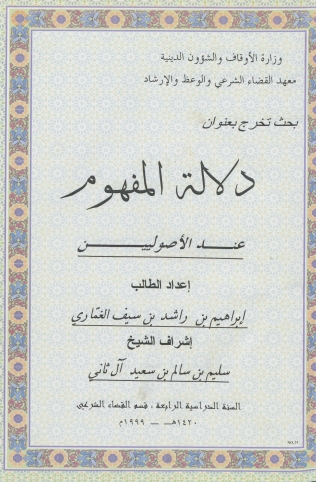 وزارة الأوقاف والشؤون الدينية
معهد القضاء الشرعي والوعظ والإرشاد
بحث تخرج بعنوان
دلالة المفهوم
عنـد الأصولييـــن
إعداد الطالب
إبراهيم بن راشد بن سيف الغمّاري
إشراف الشيخ
سليم بن سالم بن سعيد آل ثاني
السنة الدراسية الرابعة ، قسم القضاء الشرعي
١٤٢٠هـ — ١٩٩٩م